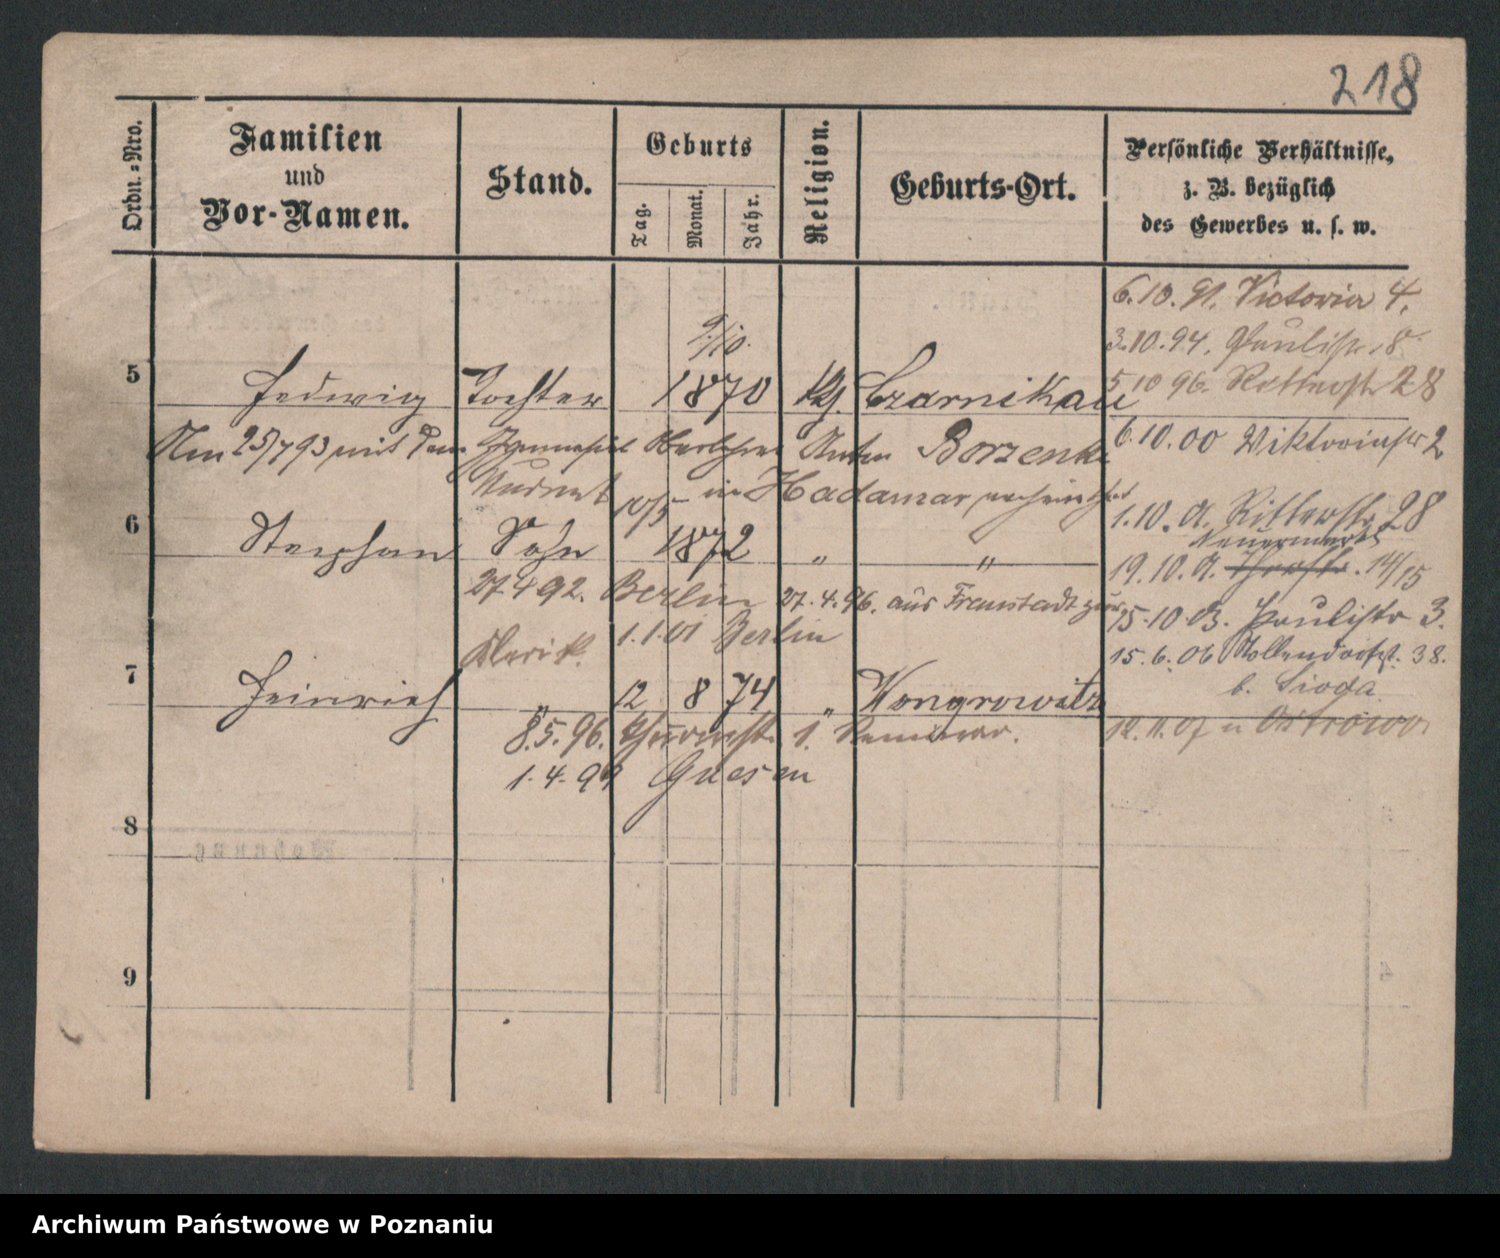 218
Ordn.-Nro.
Familien
und
Vor-Namen.
Stand.
Geburts
Tag.
Monat.
Jahr.
Religion.
Geburts-Ort.
Persönliche Verhältnisse,
z. B. bezüglich
des Gewerbes u. s. w.
6.10.91. Victoria 4.
3.10.94. Paulistr. 8
5 10 96. Ritterstr 28
6.10.00 Viktoriastr 2
1.10.01. Ritterstr 28
Neuermarkt
19.10.01. 14/15
15.10.03. Paulistr 3.
15.6.06 Nollendorfst. 38.
b. Sioda
12.11.07 n Ostrowo
9/10.
5 Hedwig Tochter 1870 kth. Czarnikau
Am 25/7 93 mit dem Gymnasial Oberlehrer Anton Borzenki
in Hadamar
Student
10/5
6 Stephan Sohn 1872 " "
27.4 92. Berlin 27.4.96. aus Fraustadt zur
1.1.01 Berlin
Klerik.
7 Heinrich " 12 8 74 " Wongrowitz
8.5.96. Thurmstr. 1. Seminar.
1.4.99 Gnesen
8
9
Archiwum Państwowe w Poznaniu